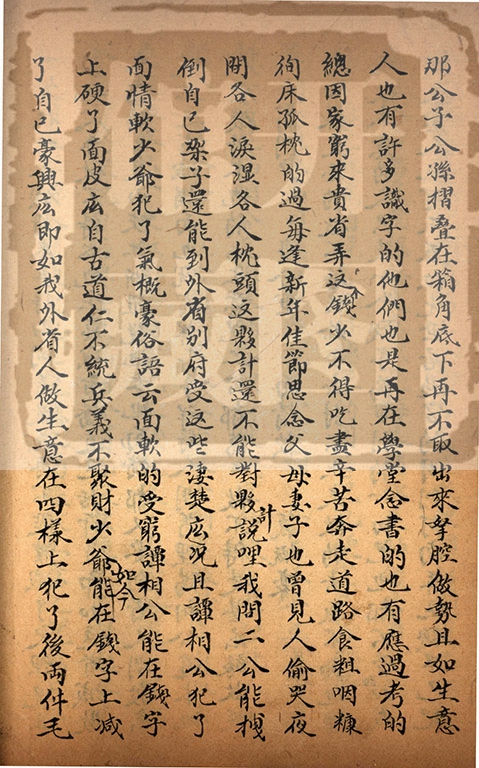 那公子公孫摺疊在箱角底下再不取出來拏腔做勢且如生意
人也有許多識字的他們也是再在學堂念書的也有應過考的
總因家窮來貴省弄這个錢少不得吃盡辛苦奔走道路食粗咽糠
徇床孤枕的過每逢新年佳節思念父母妻子也曾見人偷哭夜
間各人淚湿各人枕頭這夥計還不能對夥計說哩我問二公能拽
倒自已架子還能到外省别府受这些淒楚庅况且譚相公犯了
面情軟少爺犯了氣概豪俗語云面軟的受窮譚相公能在錢字
上硬了面皮庅自古道仁不統兵義不聚財少爺如今能在錢字上减
了自已豪興庅即如我外省人做生意在四樣上犯了後両件毛